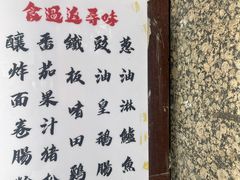 食過返尋味
蔥油淋鱸魚
豉油皇鵝腸
鐵板啫田鷄
番茄果汁猪
釀炸面卷腸